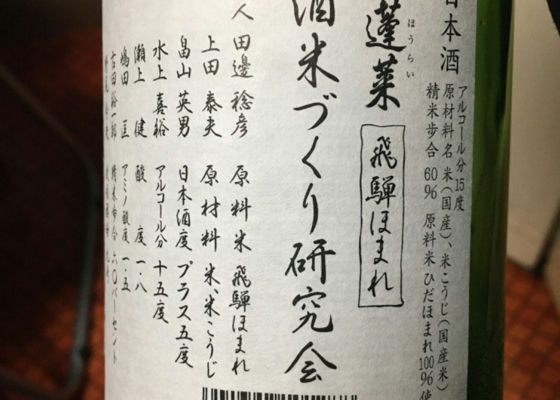 日本酒
アルコール分15度
原材料名 米(国産)、米こうじ(国産米)
精米歩合 60% 原料米 ひだほまれ100%使
蓬莱
ほうらい
飛騨ほまれ
酒米づくり研究会
人 田邊 稔彦
原料米 飛騨ほまれ
上田 泰夫
原材料 米、米こうじ
畠山 英男
日本酒度 プラス五度
水上 喜裕
アルコール分 十五度
瀬上 健
酸度 一・八
嶋田 匡
アミノ酸度 一・五
古田 裕一郎
精米歩合 六〇パーセント